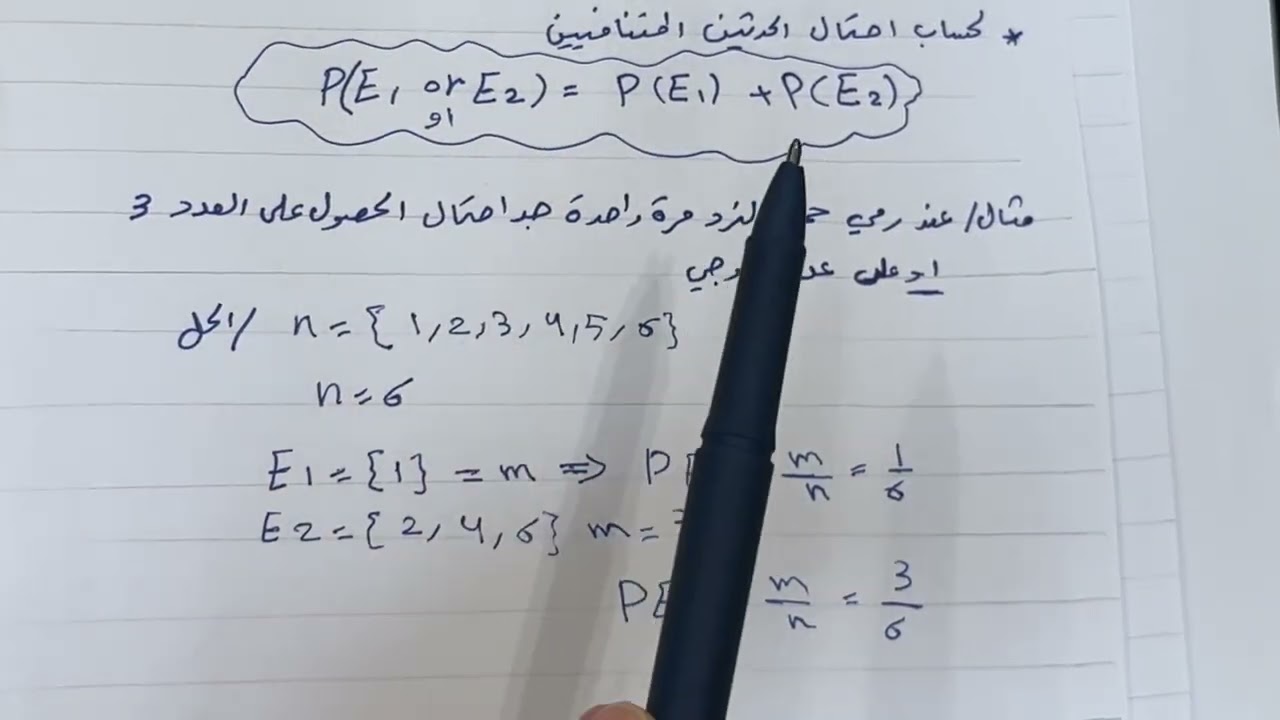 * لحساب احتمال الحدثين المتنافيين
P(E1 or E2) = P(E1) + P(E2)
او
مثال/ عند رمي النرد مرة واحدة جد احتمال الحصول على العدد 3
او على
الحل/ n = {1, 2, 3, 4, 5, 6}
n = 6
E1 = {1} = m ⇒ P m/n = 1/6
E2 = {2, 4, 6} m =
P m/n = 3/6